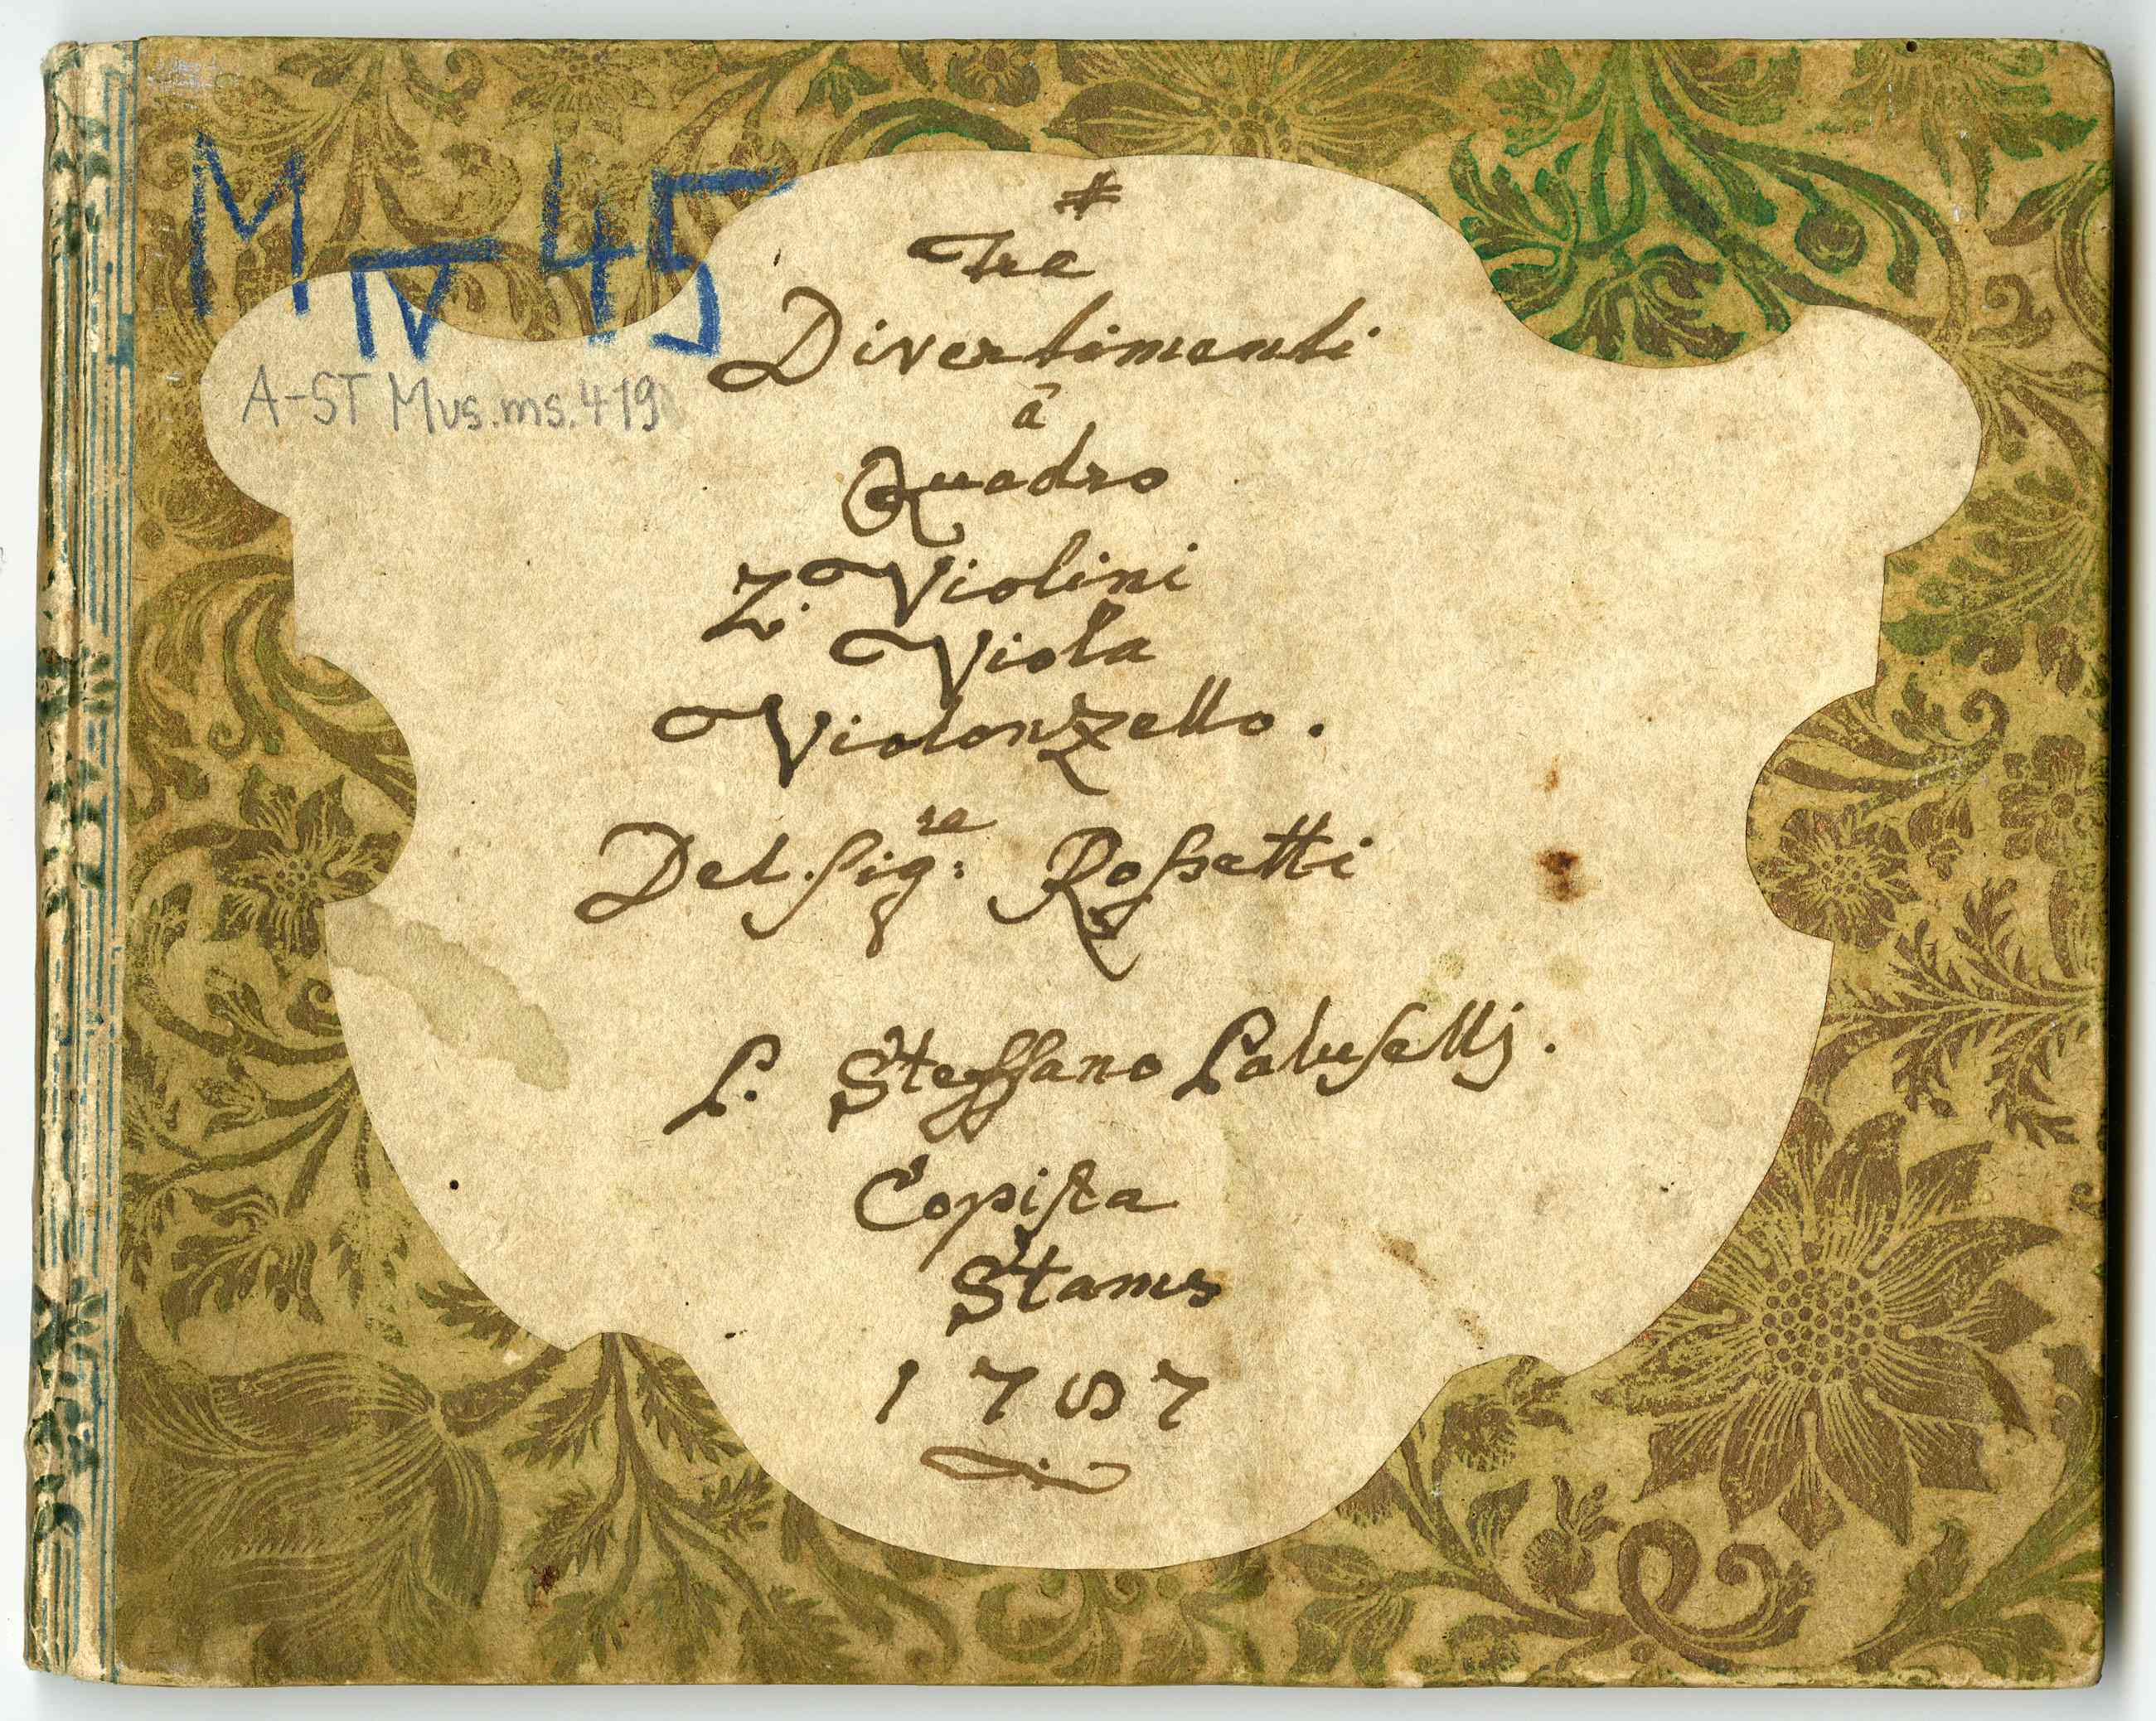 M IV 45
A-ST Mus.ms.419
#
Tre
Divertimenti
â
Quadro
2. Violini
Viola
Violonzello.
Del Sig:re Rossetti
P. Steffano Paluselli.
Copista
Stams
1787